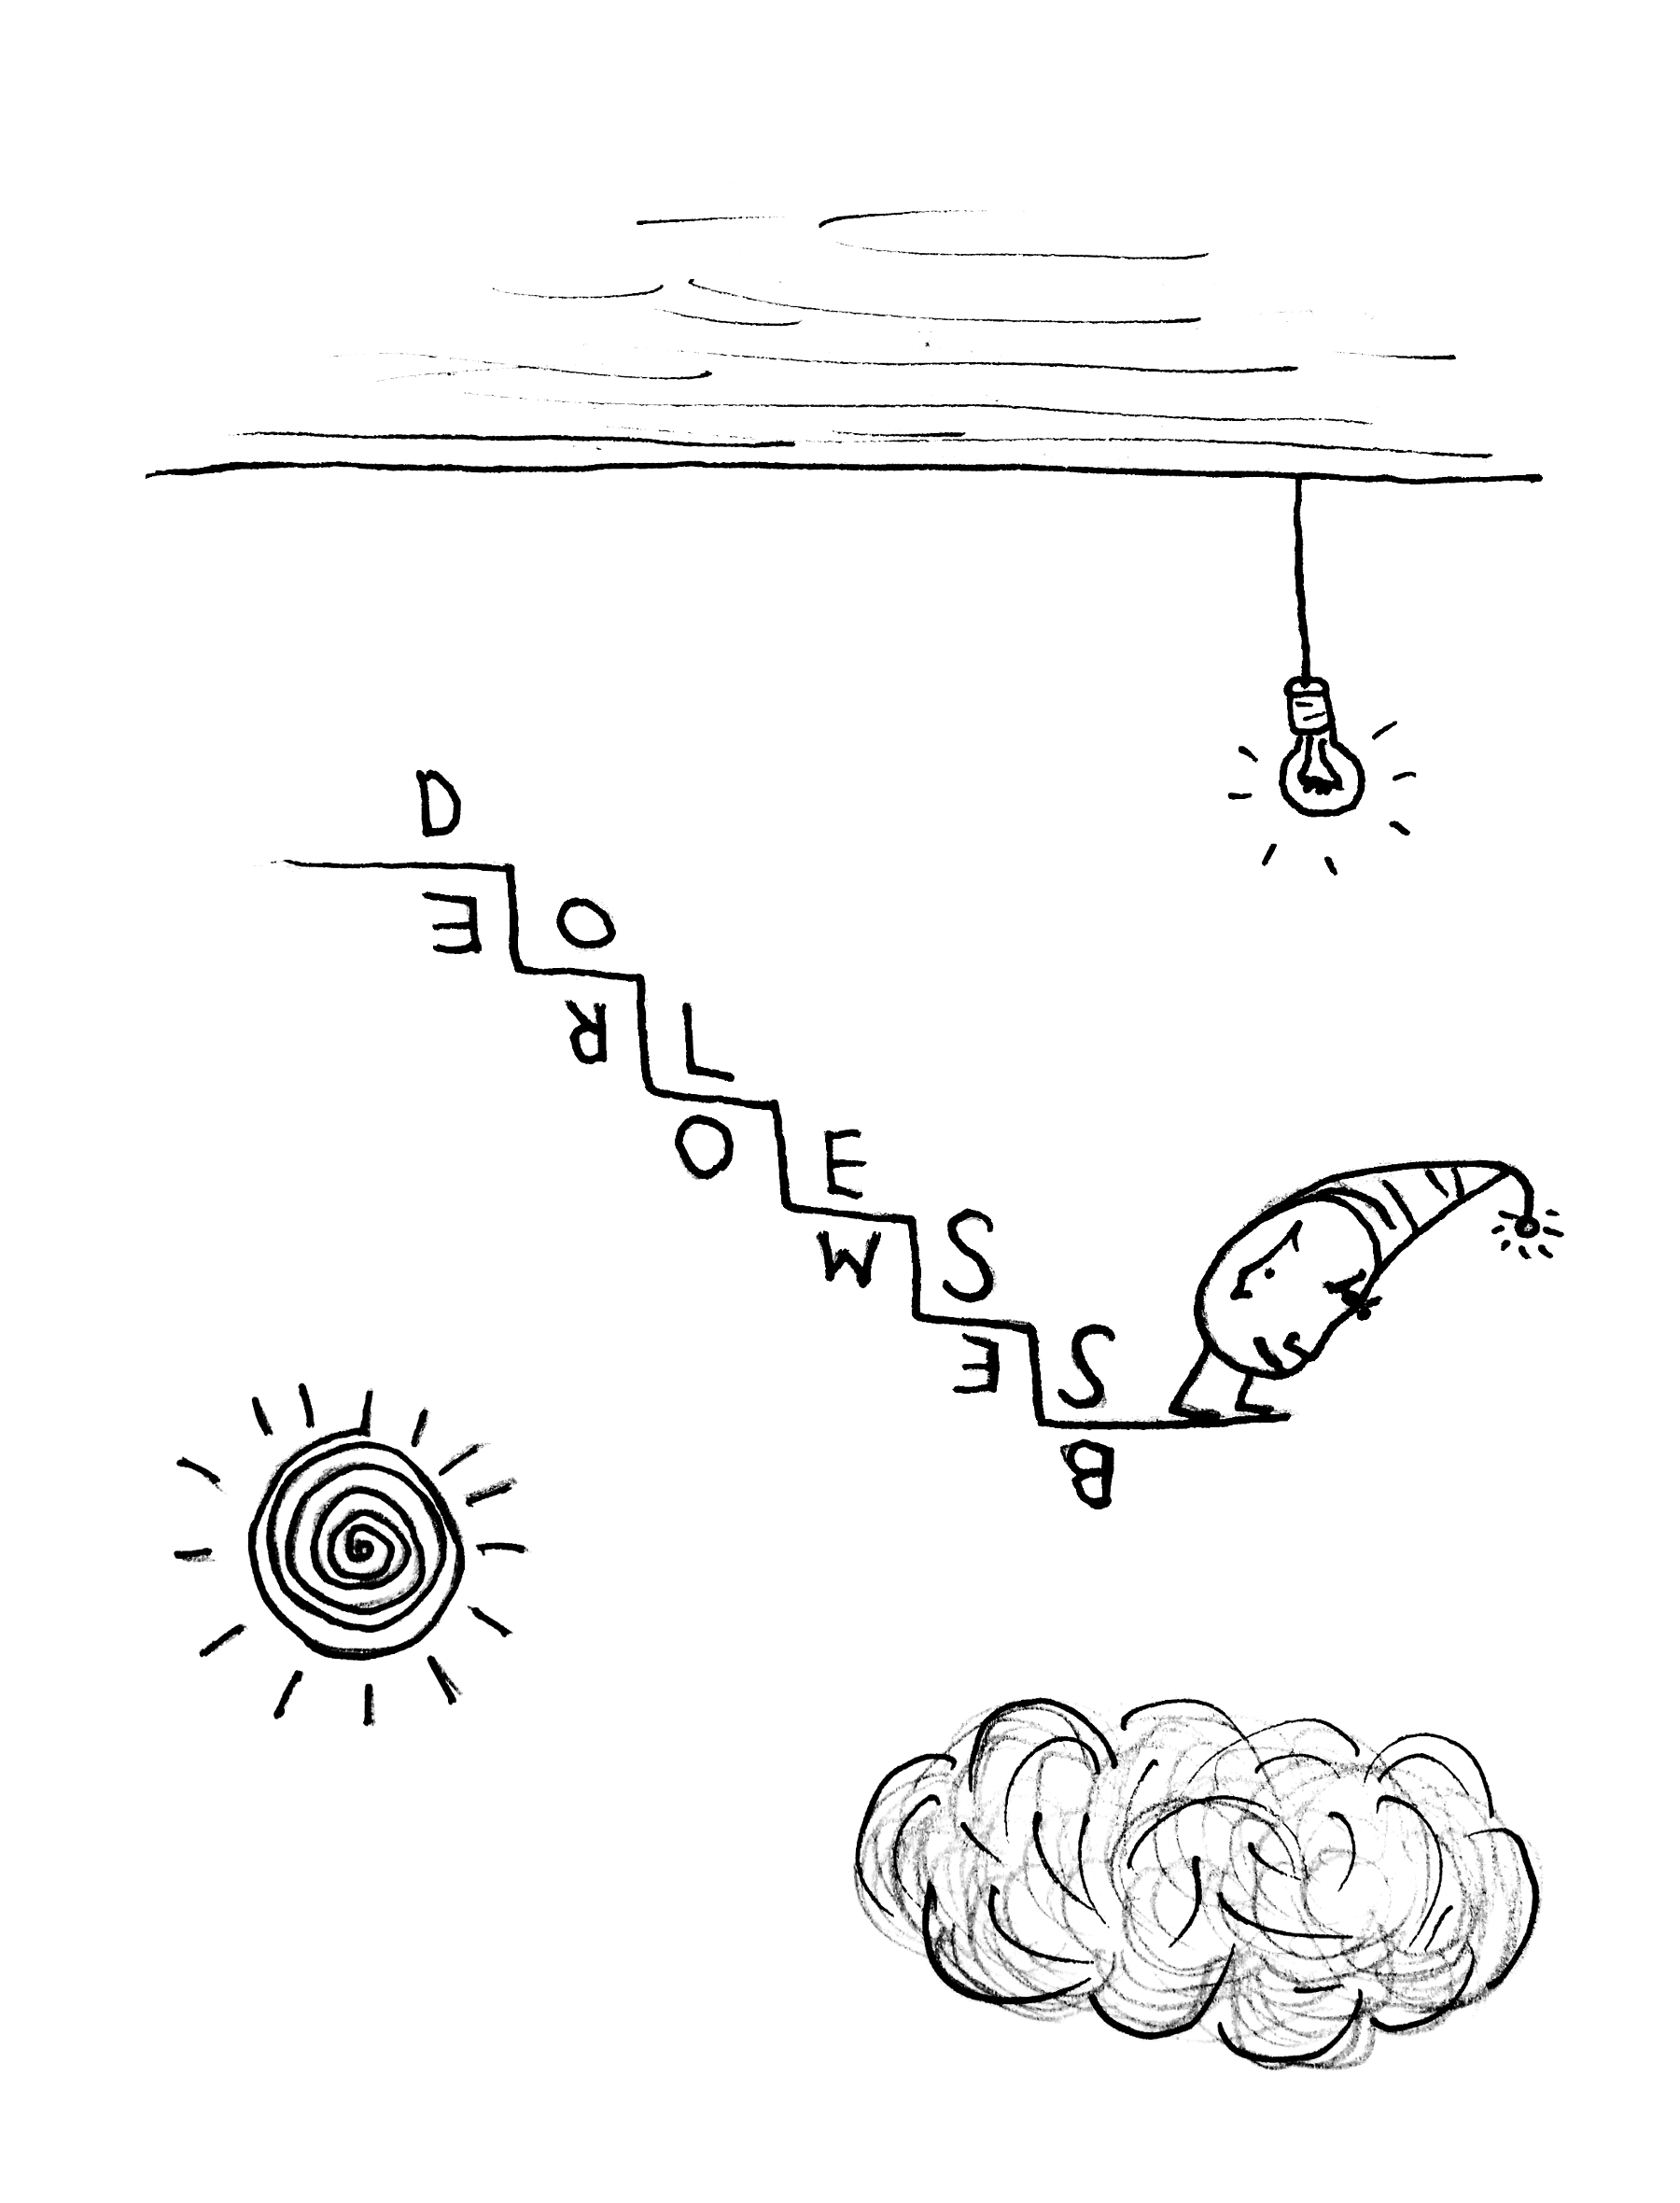 DOLESS
BEMORE